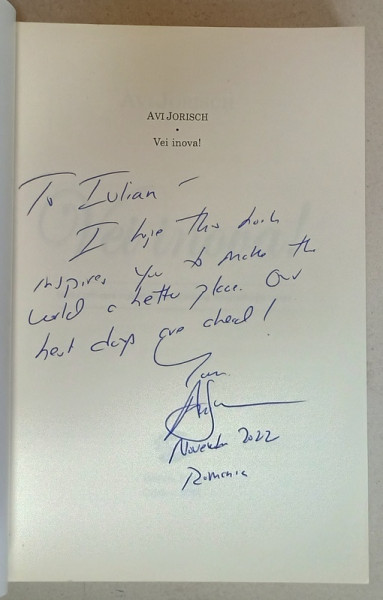 AVI JORISCH
•
Vei inova!
To Iulian –
I hope this book
inspires you to make the
world a better place. Our
best days are ahead!
November 2022
Romania